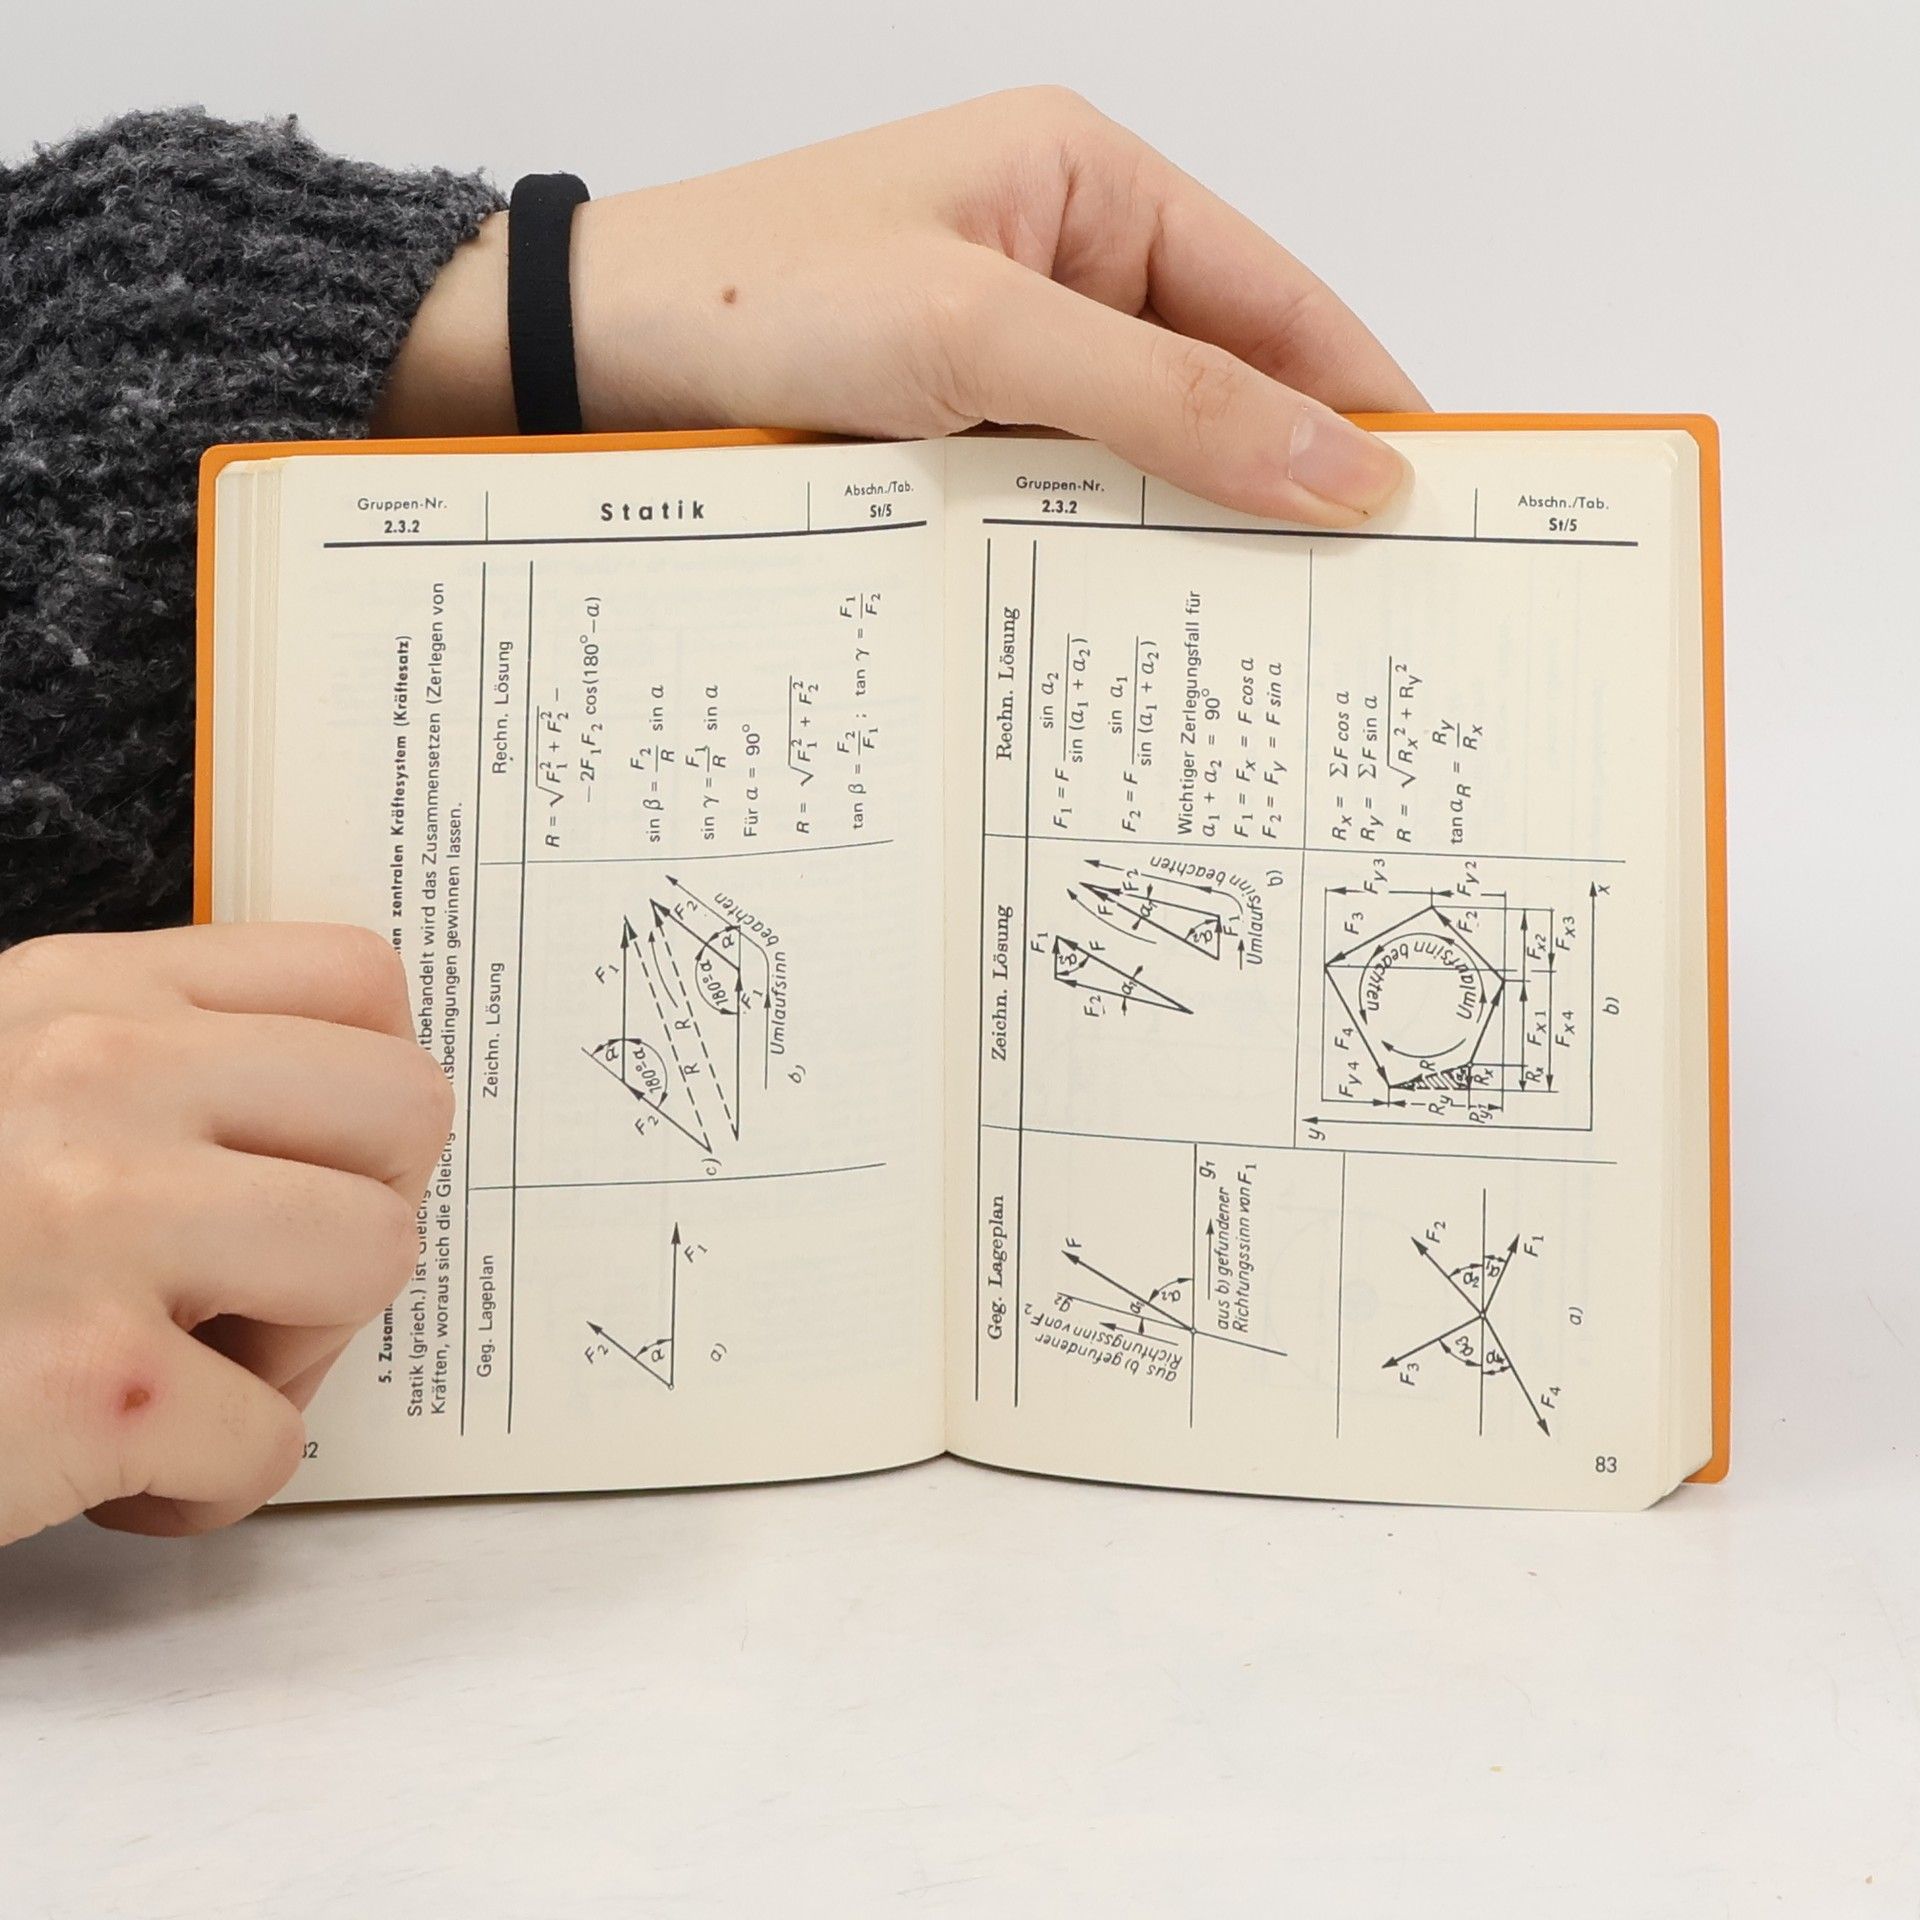 Gruppen-Nr.
2.3.2
Statik
Abschn./Tab.
St/5
5. Zusam
en zentralen Kräftesystem (Kräftesatz)
Statik (griech.) ist Gleich
tbehandelt wird das Zusammensetzen (Zerlegen von
Kräften, woraus sich die Gleich
tsbedingungen gewinnen lassen.
Geg. Lageplan
Zeichn. Lösung
Rechn. Lösung
F₂
α
F₁
a)
F₁
α
180°-α
F₂
R
R
c)
F₂
α
180°-α
F₁
Umlaufsinn beachten
b)
R = √F₁² + F₂² –
– 2F₁F₂ cos(180°–α)
sin β = F₂/R sin α
sin γ = F₁/R sin α
Für α = 90°
R = √F₁² + F₂²
tan β = F₂/F₁ ; tan γ = F₁/F₂
Gruppen-Nr.
2.3.2
Abschn./Tab.
St/5
Geg. Lageplan
Zeichn. Lösung
Rechn. Lösung
F
g₂
α₁
α₂
g₁
aus b) gefundener
Richtungssinn von F₂
aus b) gefundener
Richtungssinn von F₁
F₁
α₂
F
F₂
α₁
F₂
F
α₁
α₂
F₁
Umlaufsinn beachten
b)
F₁ = F sin α₂ / sin (α₁ + α₂)
F₂ = F sin α₁ / sin (α₁ + α₂)
Wichtiger Zerlegungsfall für
α₁ + α₂ = 90°
F₁ = Fx = F cos α
F₂ = Fy = F sin α
F₂
α₂
α₁
F₁
F₃
α₃
F₄
a)
y
Fy4
F₄
F₃
Fy3
Umlaufsinn beachten
F₂
Fy2
R
Ry
Rx
Rx
Fx1
Fx2
Fx4
Fx3
x
b)
Rx = ΣF cos α
Ry = ΣF sin α
R = √Rx² + Ry²
tan αR = Ry/Rx
83